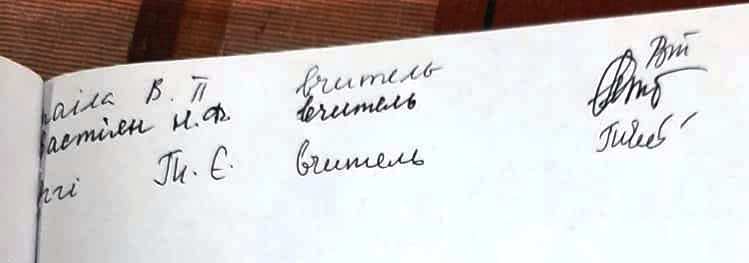 аіла В. П вчитель
астіян Н. Ф. вчитель
гі Ти. Є. вчитель